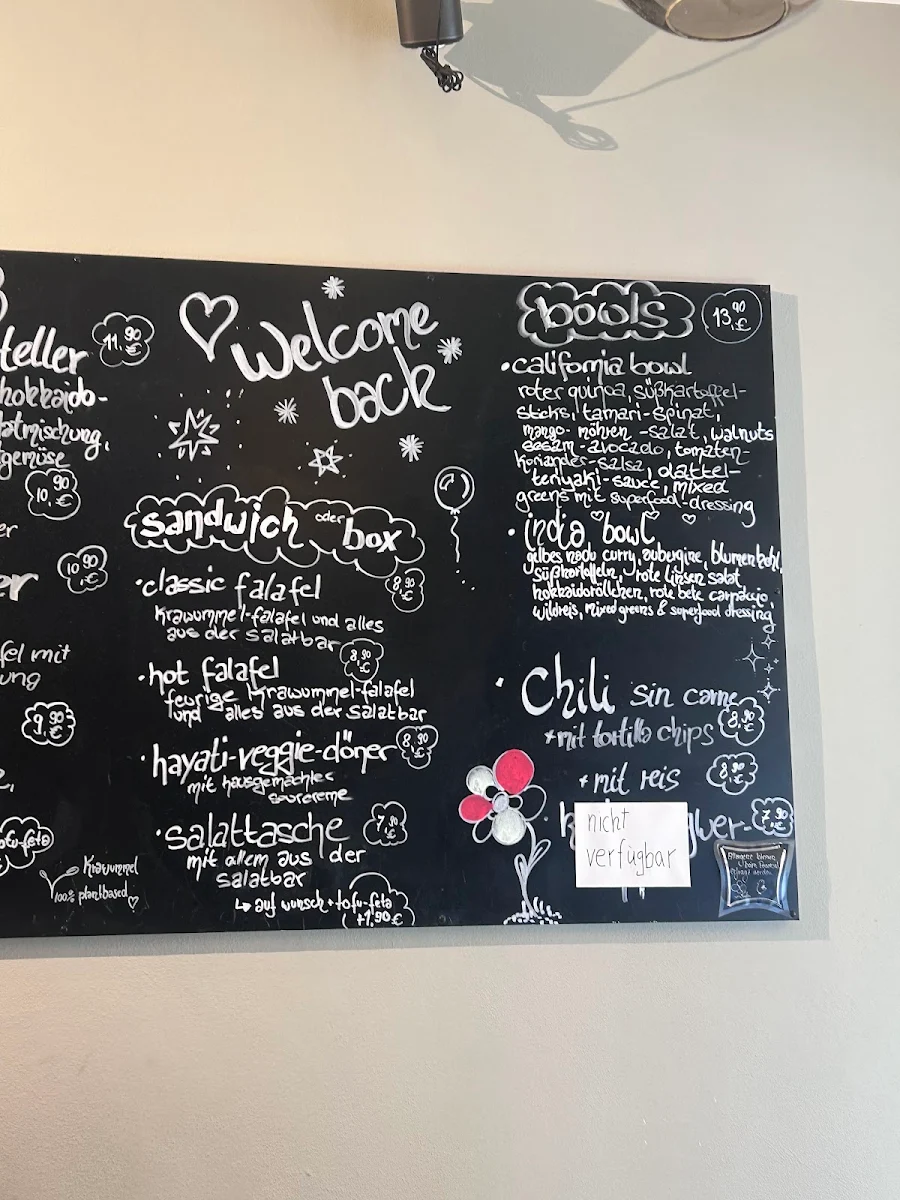 teller
11,90 €
hokkaido-
atmischung,
gemüse
10,90 €
er
10,90 €
er
fel mit
ung
9,90 €
ofu-feta
Krawummel
100% plantbased
Welcome
back
sandwich oder box
• classic falafel 8,90 €
Krawummel-falafel und alles
aus der salatbar
• hot falafel 8,90 €
feurige Krawummel-falafel
und alles aus der salatbar
• hayati-veggie-döner 8,90 €
mit hausgemachter
sourcreme
• salattasche 7,90 €
mit allem aus der
salatbar
↳ auf wunsch + tofu-feta
(+1,90 €
bowls 13,90 €
• california bowl
roter quinoa, süßkartoffel-
sticks, tamari-spinat,
mango-möhren-salat, walnuts
sesam-avocado, tomaten-
koriander-salsa, dattel-
teriyaki-sauce, mixed
greens mit superfood-dressing
• india bowl
gelbes curry, aubergine, blumenkohl,
süßkartoffeln, rote linsen salat,
hokkaidoröllchen, rote bete carpaccio,
wildreis, mixed greens & superfood dressing
• Chili sin carne
+ mit tortilla chips 8,90 €
+ mit reis 8,90 €
wer- 7,90 €
nicht
verfügbar